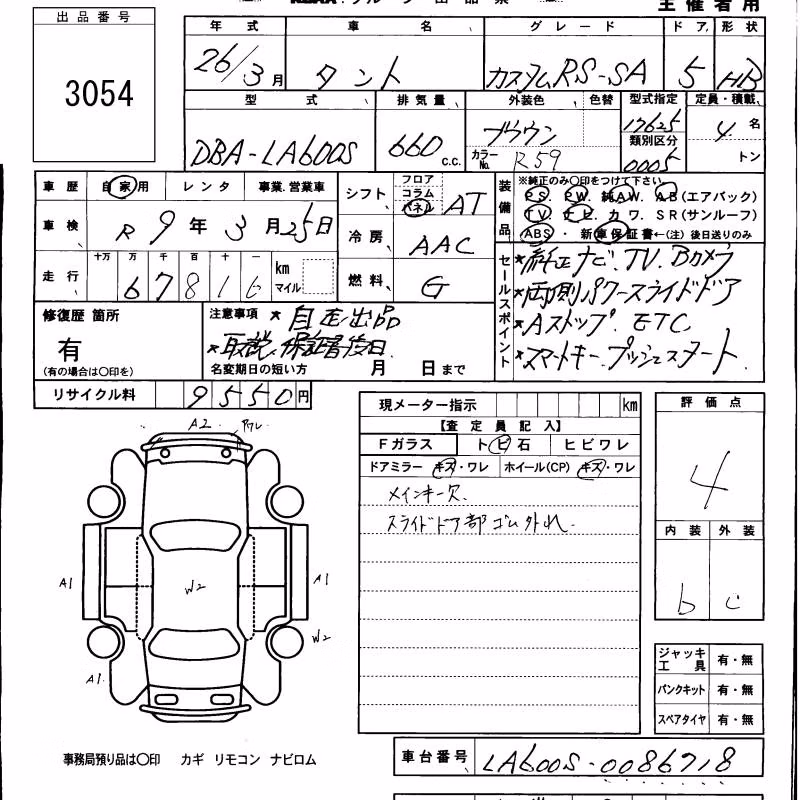 主催者用
出品番号
3054
年式 車名 グレード ドア 形状
26/3月 タント カスタムRS-SA 5 HB
型式 排気量 外装色 色替 型式指定 定員・積載
DBA-LA600S 660 c.c. ブラウン 17625 4 名
カラーNo. R59 類別区分 0005 トン
車歴 自家用 レンタ 事業・営業車
車検 R9年3月25日
走行 十万 万 千 百 十 一 km マイル
67816
シフト フロア コラム パネル AT
冷房 AAC
燃料 G
装備品 ※純正のみ○印をつけて下さい
PS. PW. 純AW. AB(エアバック)
TV. ナビ. カワ. SR(サンルーフ)
ABS・新車保証書←(注)後日送りのみ
セールスポイント
★純正ナビ.TV.Bカメラ
★両側パワースライドドア
★Aストップ.ETC
★スマートキー.プッシュスタート
修復歴 箇所
有
(有の場合は○印を)
注意事項 ★自走出品
★取説、保証書後日
名変期日の短い方 月 日まで
リサイクル料 9550円
現メーター指示 km
【査定員記入】
Fガラス トビ石 ヒビワレ
ドアミラー キズ・ワレ ホイール(CP) キズ・ワレ
メインキー欠.
スライドドア部ゴム外れ.
評価点
4
内装 外装
b c
ジャッキ工具 有・無
パンクキット 有・無
スペアタイヤ 有・無
A2 ワレ
A1 W2 A1
W2
A1
事務局預り品は○印 カギ リモコン ナビロム
車台番号 LA600S-0086718